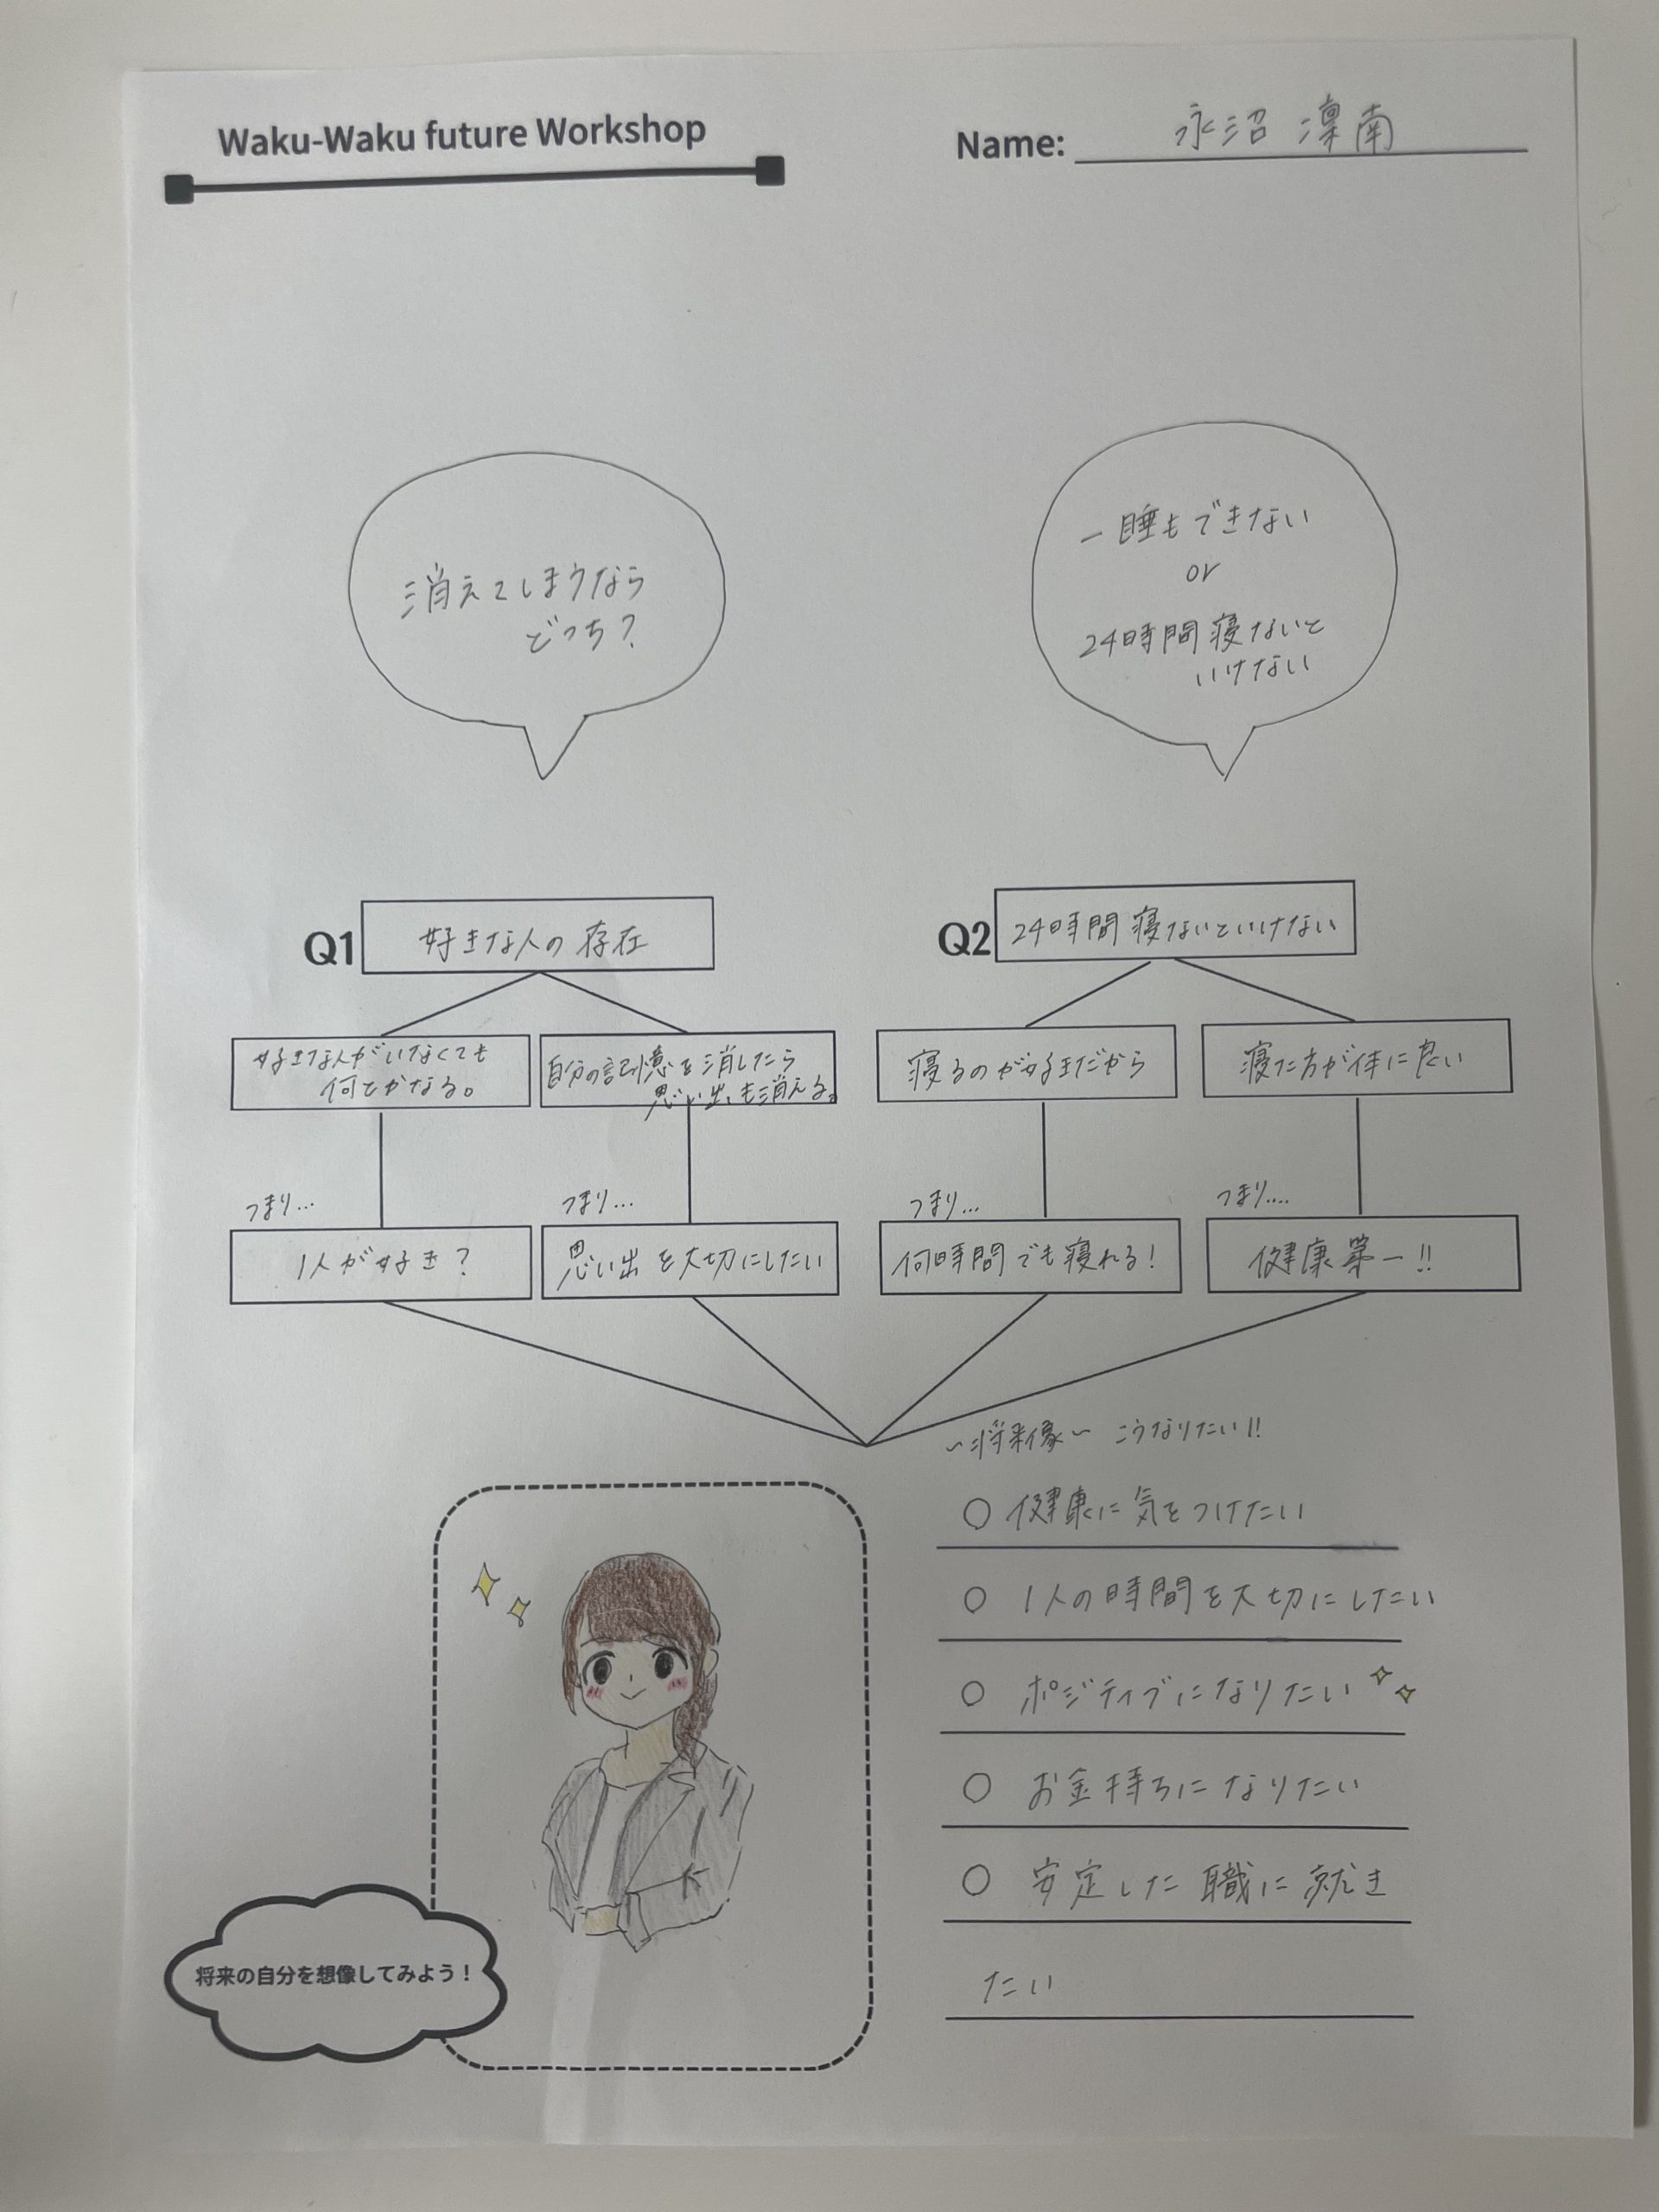 Waku-Waku future Workshop
Name: 永沼 凜南
消えてしまうなら
どっち?
一睡もできない
or
24時間寝ないと
いけない
Q1 好きな人の存在
好きな人がいなくても
何とかなる。
自分の記憶を消したら
思い出も消える。
つまり...
1人が好き?
つまり...
思い出を大切にしたい
Q2 24時間寝ないといけない
寝るのが好きだから
寝た方が体に良い
つまり...
何時間でも寝れる!
つまり....
健康第一!!
~将来像~ こうなりたい!!
○ 健康に気をつけたい
○ 1人の時間を大切にしたい
○ ポジティブになりたい
○ お金持ちになりたい
○ 安定した職に就き
たい
将来の自分を想像してみよう!